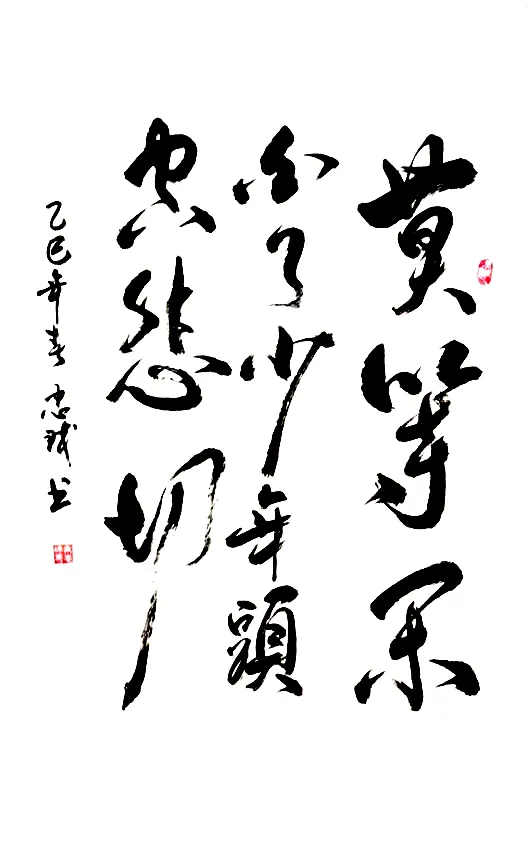 莫等閑
白了少年頭
空悲切
乙巳年春 忠 书